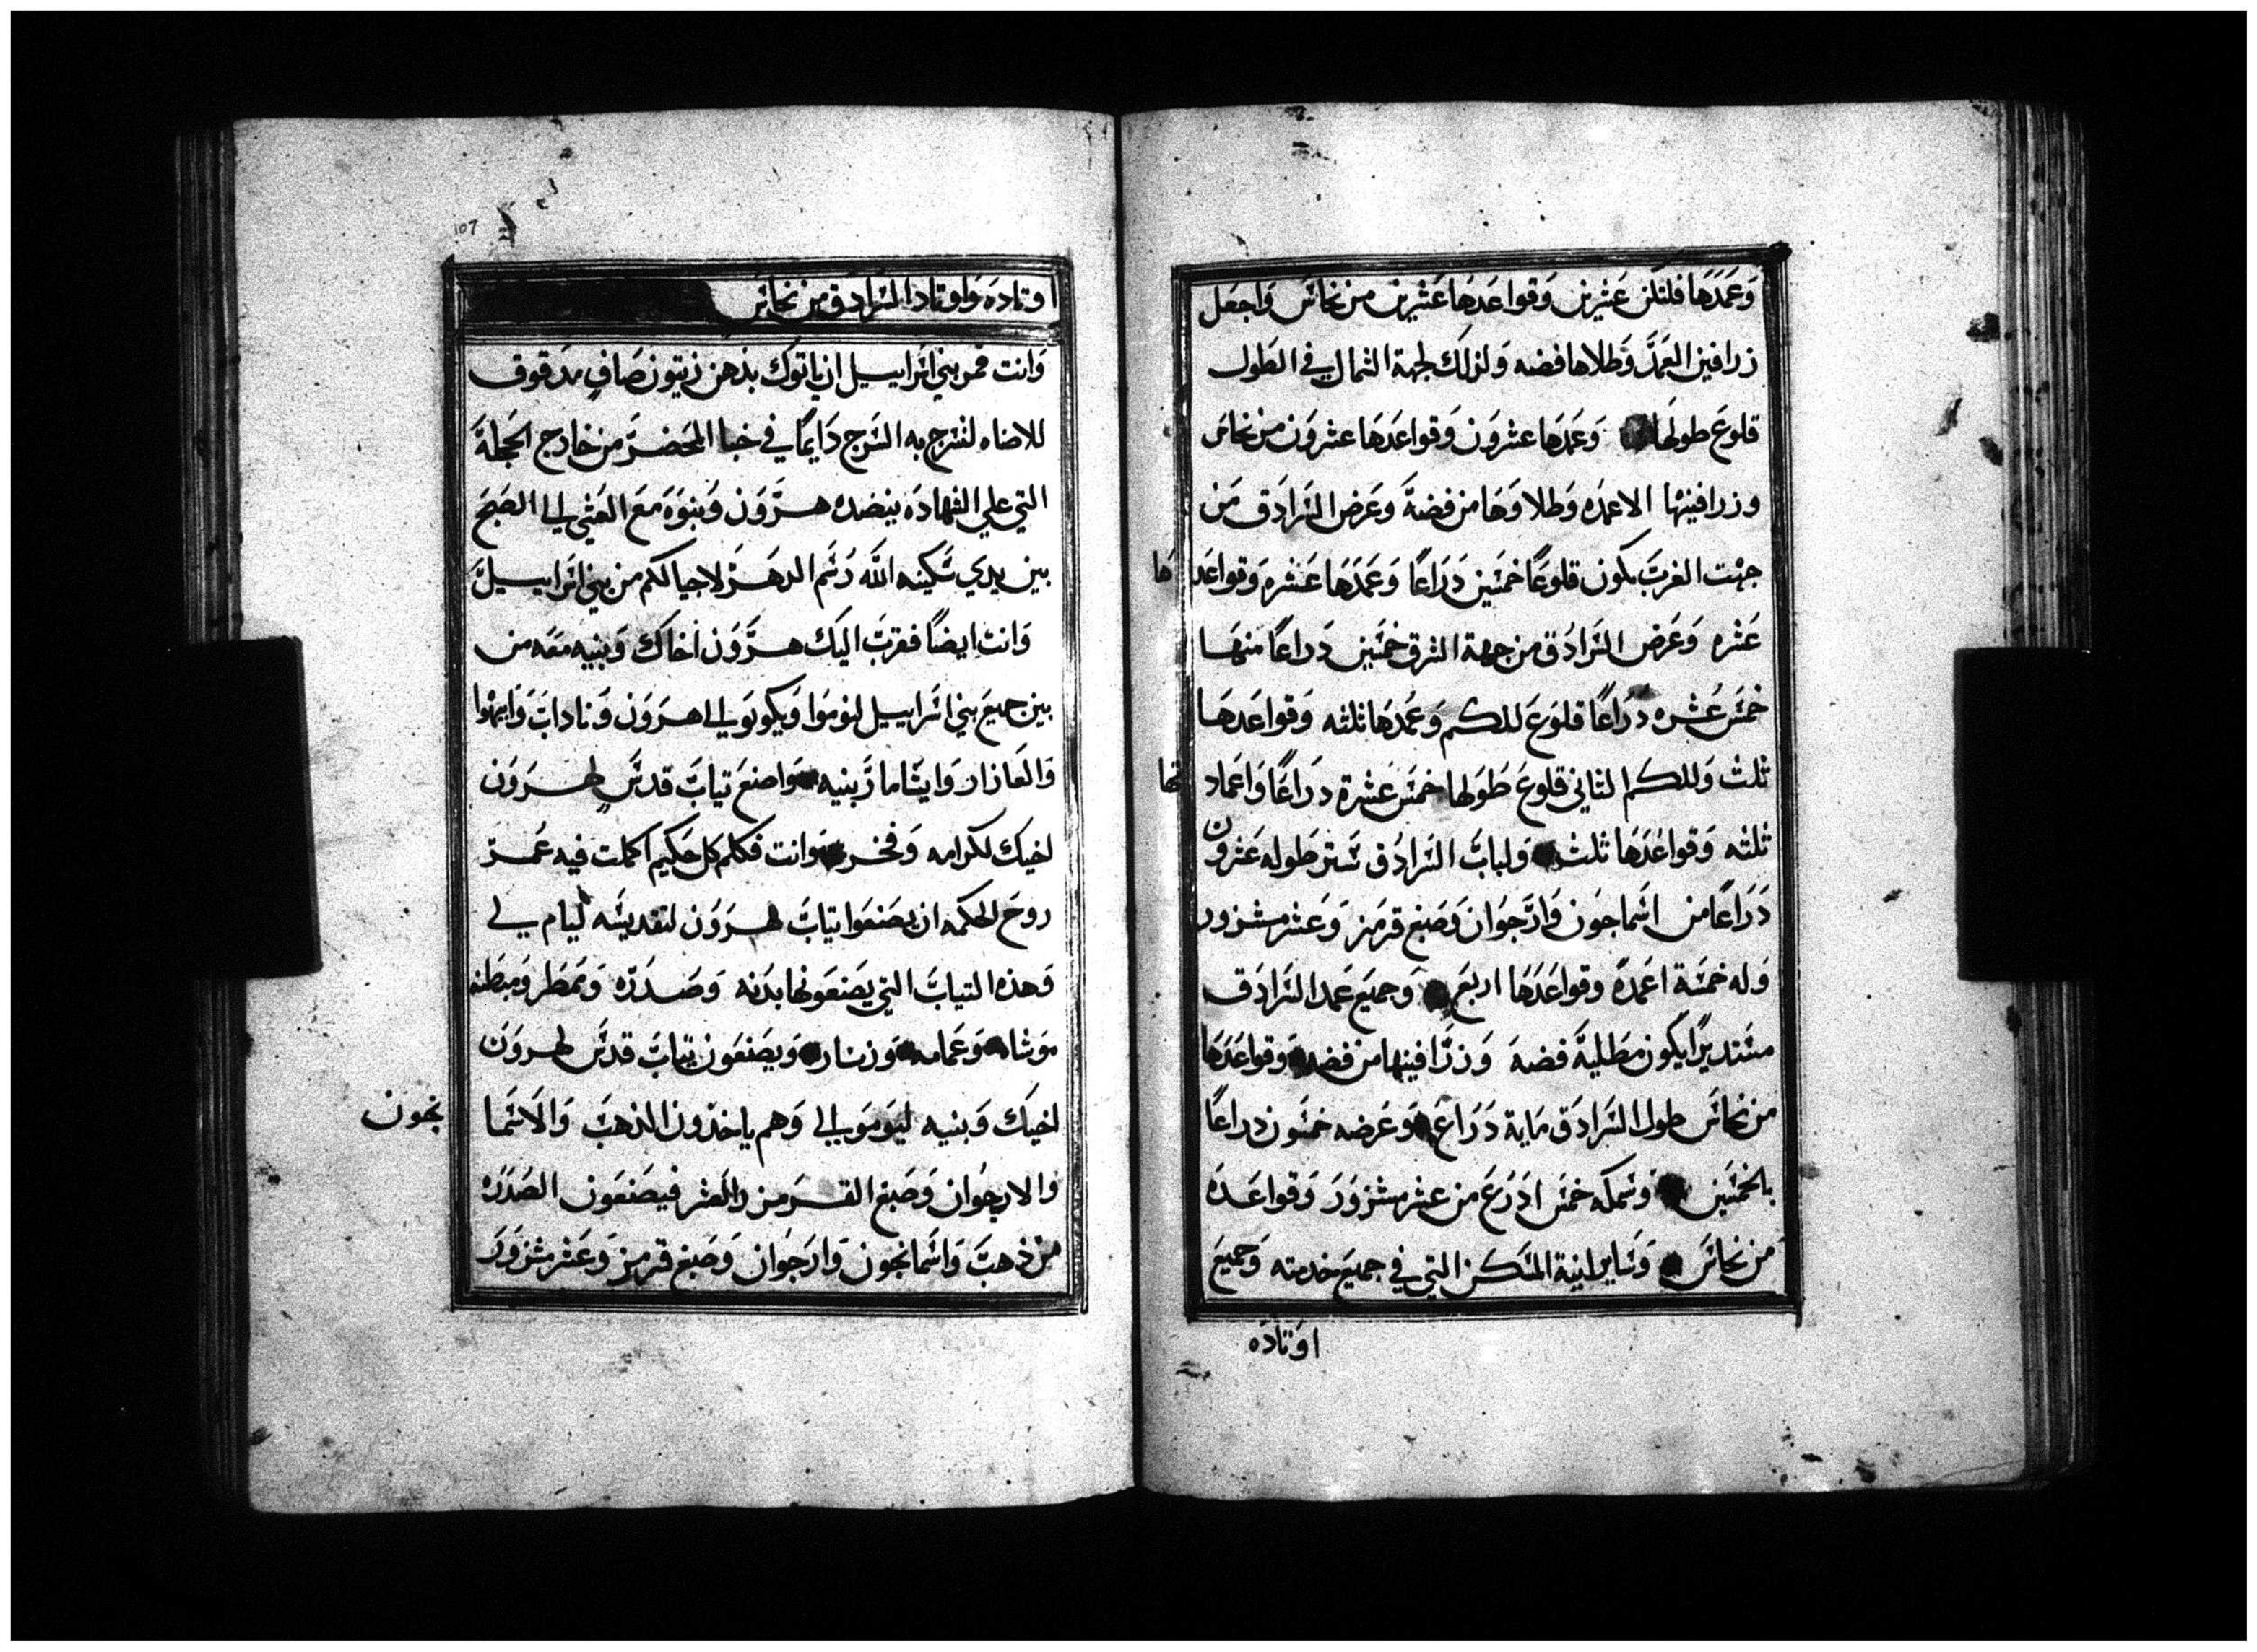 وَعَمَدَهَا فلتكن عَشرين وَقواعَدهَا عَشرين من نحاسَ وَاجعَل
زرافين العَمدَّ وَطلاها فضه وَلذلك لجهة الشمال في الطَول
قلوعَ طولهَا وَعَمَدهَا عشروَن وَقواعَدهَا عشروَن من نحاسَ
وزرافينها الاعمَده وَطلاوَهَا من فضةَ وَعَرض السَرادَق مَن
جهت الغربَ يكون قلوعًا خمسَين دَرَاعًا وَعَمدَهَا عَشره وَقواعَدهَا
عَشره وَعَرض السَرادُق من جهة الشرق خمسَين دَراعًا منهَا
خمسَ عُشره درَاعًا قلوَعَ للكم وَعمُدهَا ثلثه وَقواعَدهَا
ثلث وَللكم الثاني قلوعَ طَوَلها خمسَ عَشرة دَرَاعًا وَاعمَادتها
ثلثه وَقواعُدَهَا ثلث وَلبابَ السَرادُق سَتر طَوله عَشرون
دَرَاعًا من اسَماجون وَارَجوَان وَصَبغ قرمَز وَعَشر مشزور
وَله خمسَة اعَمدَة وقواعَدَهَا اربعَ وَجميَع عَمد السَرادَق
مسَتديرًا يكون مطَليةَ فضهَ وَزرَافينها من فضه وَقواعَدَهَا
من نحاسَ طول السَرادَق مَاية دَرَاعَ وَعَرضه خمسَون دراعًا
بالخمسَين وسَمكه خمسَ ادَرُعَ من عشر مشزوَرَ وَقواعَدَه
من نحاسَ وَسَاير انية المسَكن التي في جميَع خدمته وَجميعَ
اوَتادَه
107
اوتادَه وَاوتاد السَرادق من نحاسَ
وَانت فمُر بني اسَراييل ان ياتوكَ بدَهن زيتون صَافٍ مدَقوق
للاضاه لتسَرج به السَرج دَايمًا في خبا المحَضرَ من خارج الحَجلةَ
التي علي الشهادَه ينضدَه هرَوَن وَبنوَه مَعَ العَشي الي الصَبحَ
بين يدي سَكينه اللَه رُسَم الدهَر لاجيالكم من بني اسَراييلَ
وَانت ايضًا فقربَ اليكَ هرَوَن اخاكَ وَبنيه معَه من
بين جميعَ بني اسَراييل ليومَوا وَيكونوَ لي اهرَوَن وَنادابَ وَابيهوا
وَالعَازار وَايثامار بَنيه وَاصنعَ تيابَ قدسَ لهرَوَن
اخيكَ لكرامه وَفخر وَانت فكلم كل حَكيم اكملت فيه عَمَر
روحَ الحكمه ان يصَنعَوا تيابَ لهرَوَن لتقديسَه ليام لي
وَهذه التيابَ التي يصَنعَونها بدَنه وَصَدرَه وَممَطَر وَمبطنه
موَشاه وَعَمامه وَزنار وَيصَنعَون تيابَ قدسَ لهروَنَ
اخيكَ وَبنيه ليَومَوَ لي وَهم ياخذون الذهبَ وَالاسَما نجون
وَالارجوُان وَصَبغ القرمَز وَالعَشر فيصَنعَون الصَدرَه
من ذهبَ وَاسَمانجون وَارَجوَان وَصَبغ قرمز وَعَشر مشزوَرَ